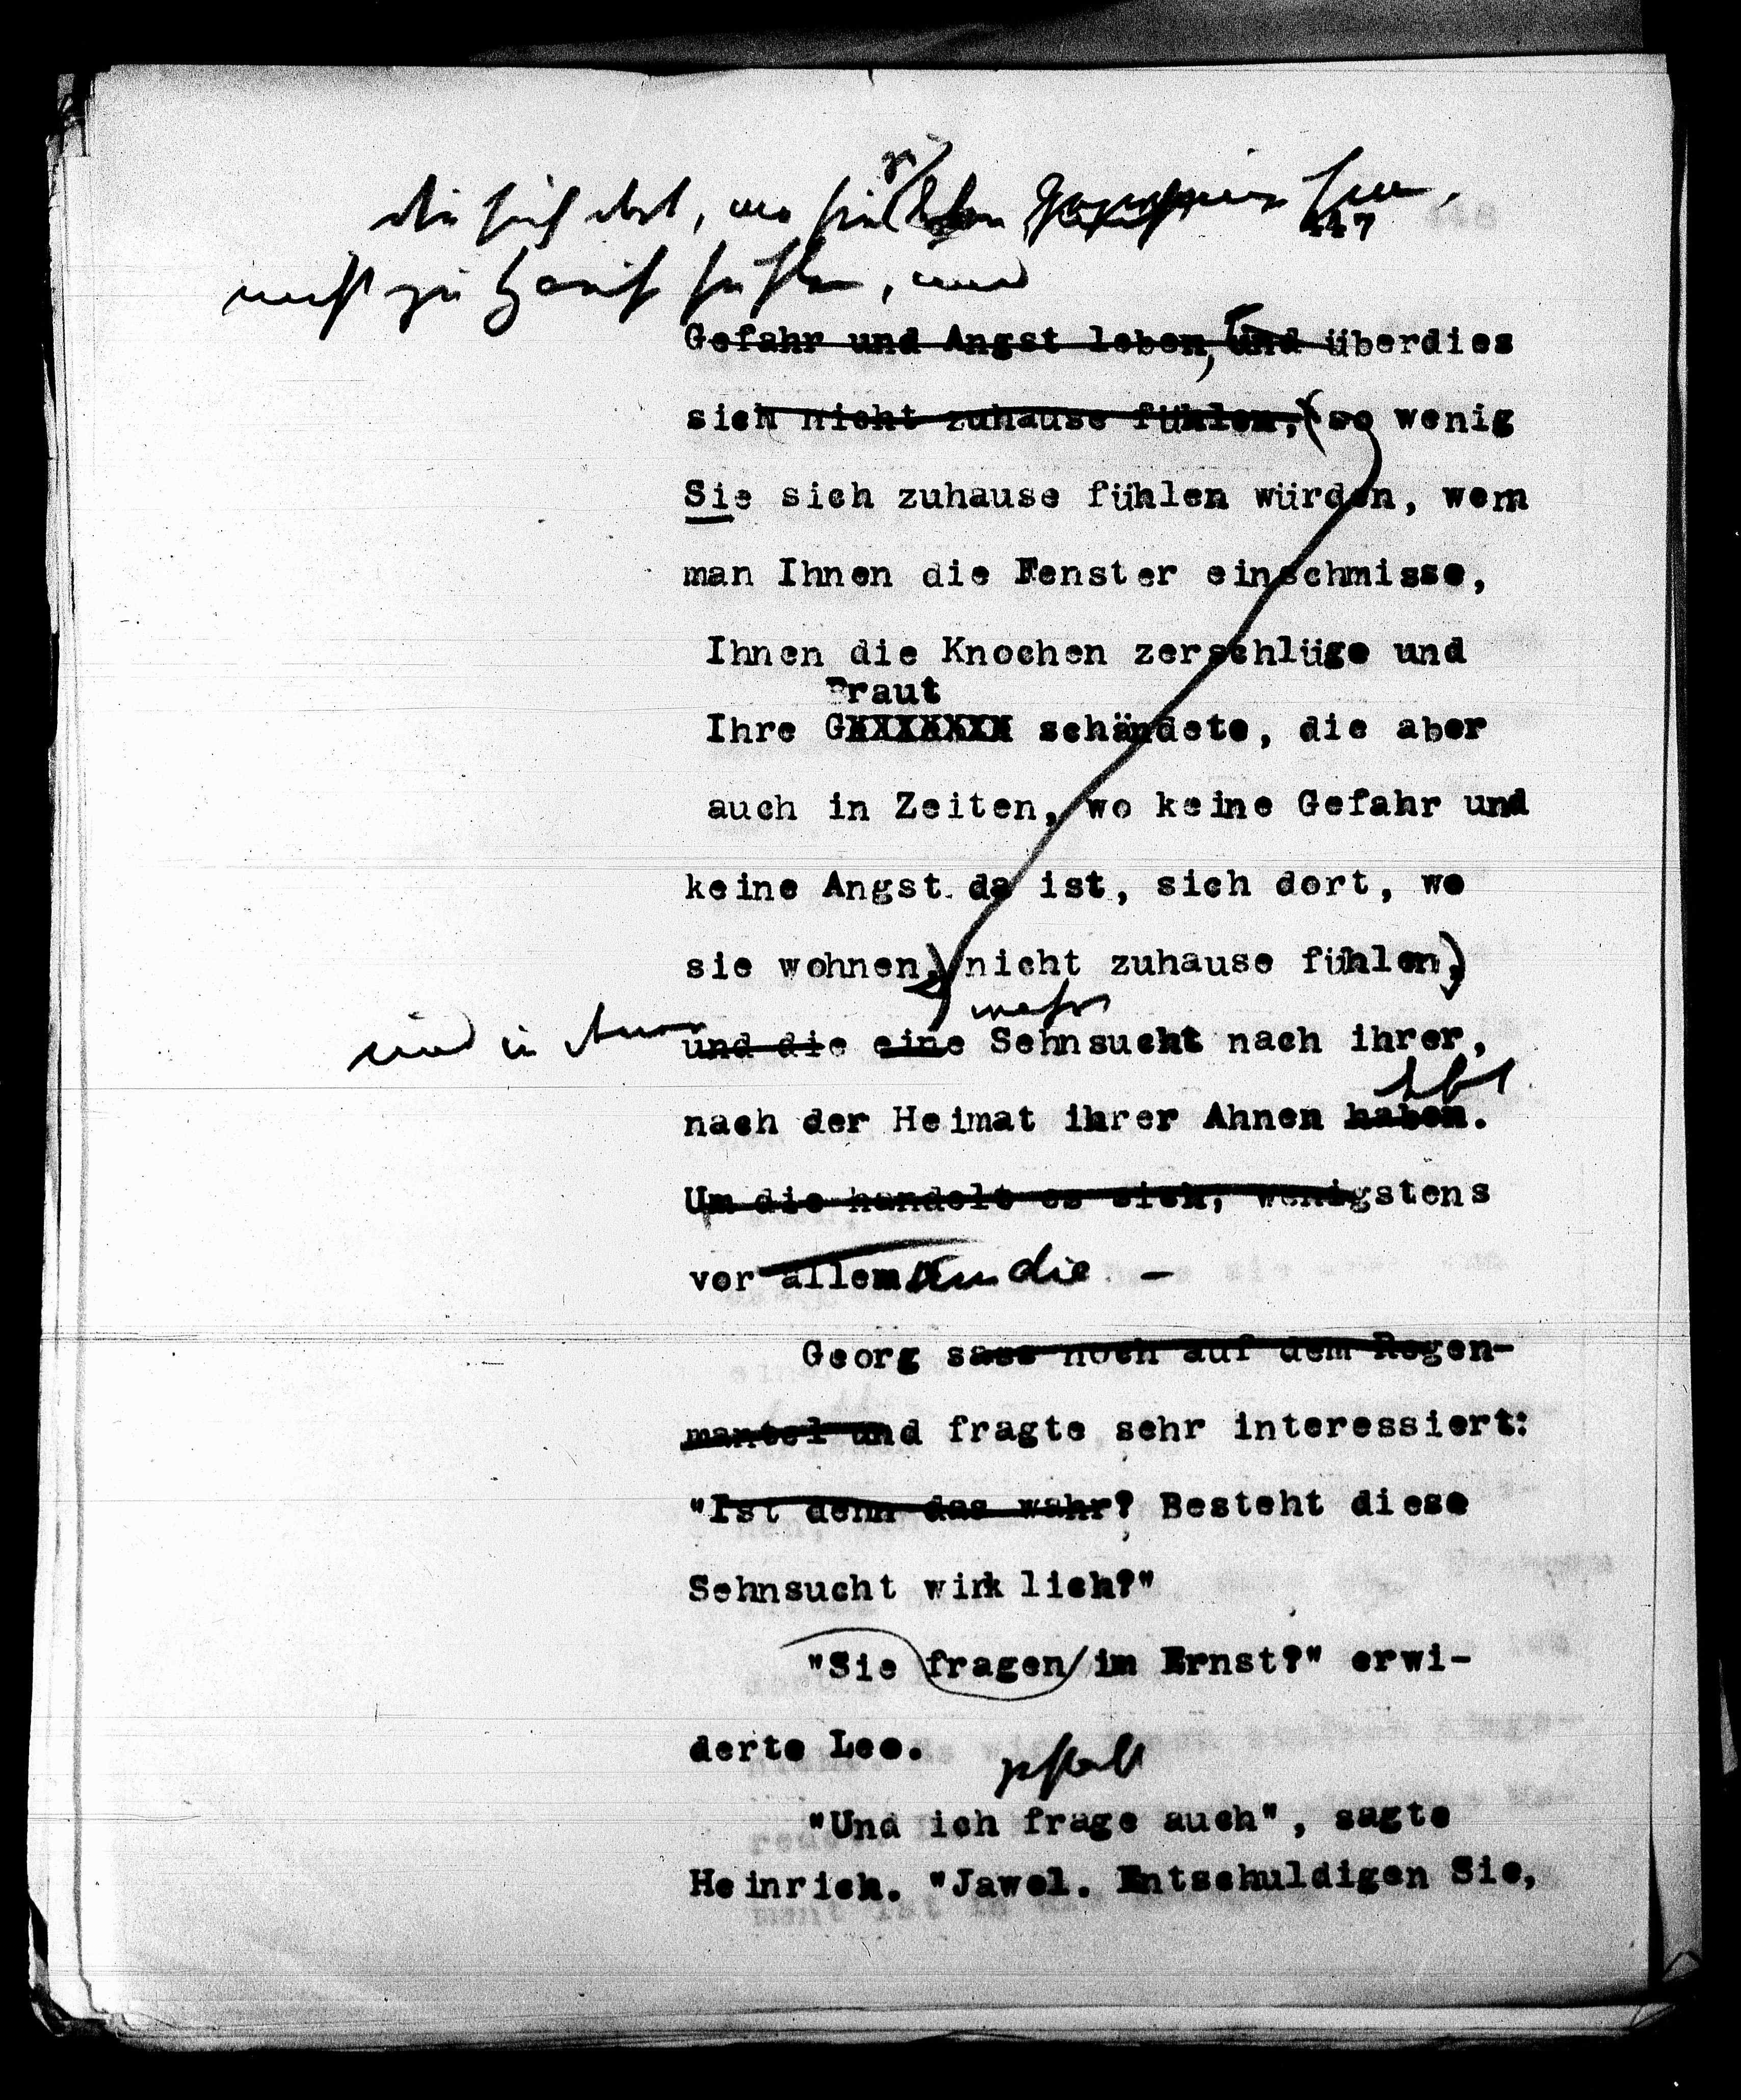 die sich dort, wo sie leben
447
nicht zu Hause fühlen, und
Gefahr und Angst leben, und überdies
sich nicht zuhause fühlen, (so wenig
Sie sich zuhause fühlen würden, wenn
man Ihnen die Fenster einschmisse,
Ihnen die Knochen zerschlüge und
Braut
Ihre GXXXXXXX schändete, die aber
auch in Zeiten, wo keine Gefahr und
keine Angst da ist, sich dort, wo
sie wohnen,) nicht zuhause fühlen,)
und in denen
und die eine Sehnsucht nach ihrer,
nach der Heimat ihrer Ahnen haben.
lebt
Um die handelt es sich, wenigstens
vor allem um die —
Georg sass noch auf dem Regen-
mantel und fragte sehr interessiert:
"Ist denn das wahr? Besteht diese
Sehnsucht wirk lich?"
"Sie fragen im Ernst?" erwi-
derte Leo.
"Und ich frage auch", sagte
Heinrich. "Jawol. Entschuldigen Sie,